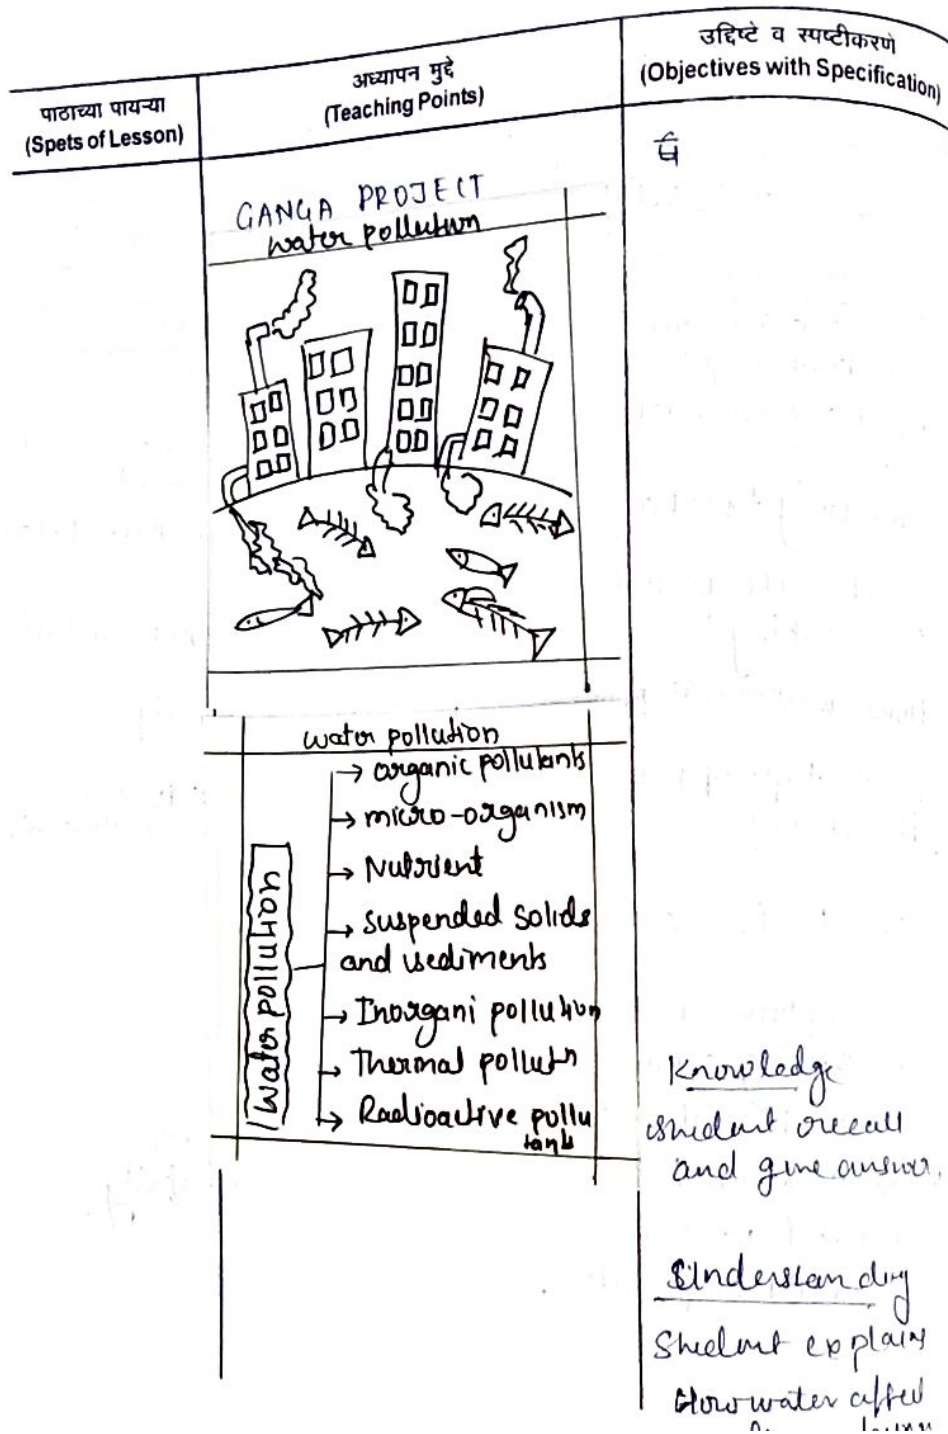 पाठाच्या पायऱ्या
(Spets of Lesson)
अध्यापन मुद्दे
(Teaching Points)
उद्दिष्टे व स्पष्टीकरणे
(Objectives with Specification)
GANGA PROJECT
water pollution
water pollution
water pollution
→ organic pollutants
→ micro-organism
→ Nutrient
→ suspended solids
and sediments
→ Inorgani pollution
→ Thermal pollutn
→ Radioactive pollu
tants
Knowledge
student recall
and give answer.
Understanding
Student explains
How water affed